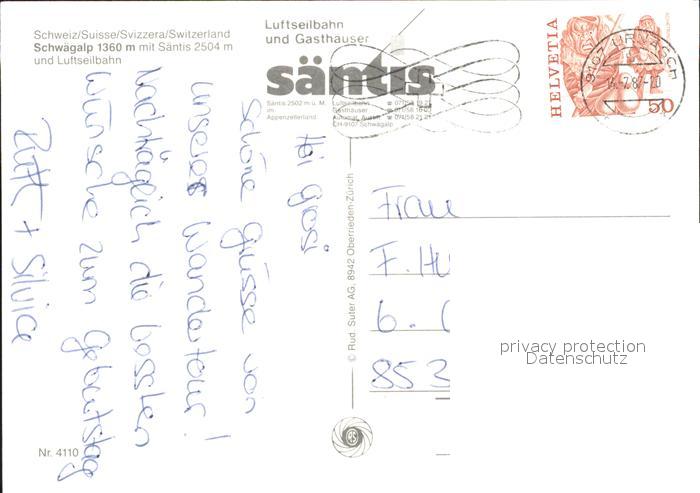 Schweiz/Suisse/Svizzera/Switzerland
Schwägalp 1360 m mit Säntis 2504 m
und Luftseilbahn
Luftseilbahn
und Gasthäuser
säntis
Säntis 2502 m ü. M.
im
Appenzellerland
Luftseilbahn
Gasthäuser
Automat. Auskft
CH-9107 Schwägalp
HELVETIA
50
9107 URNÄSCH
Hoi
schöne Grüsse von
unserer Wandertour!
Nachträglich die besten
Wünsche zum Geburtstag
+ Silvice
© Rud. Suter AG, 8942 Oberrieden-Zürich
Frau
F. Hu
6.
853
privacy protection
Datenschutz
Nr. 4110